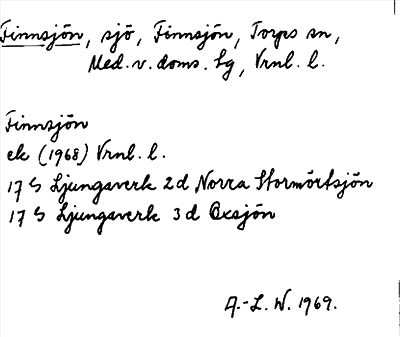 Finnsjön, sjö, Finnsjön, Torps sn,
Med. v. doms. tg, Vrnl. l.
Finnsjön
ek (1968) Vrnl. l.
17 G Ljungaverk 2 d Norra Stormörtsjön
17 G Ljungaverk 3 d Oxsjön
A.-L. W. 1969.